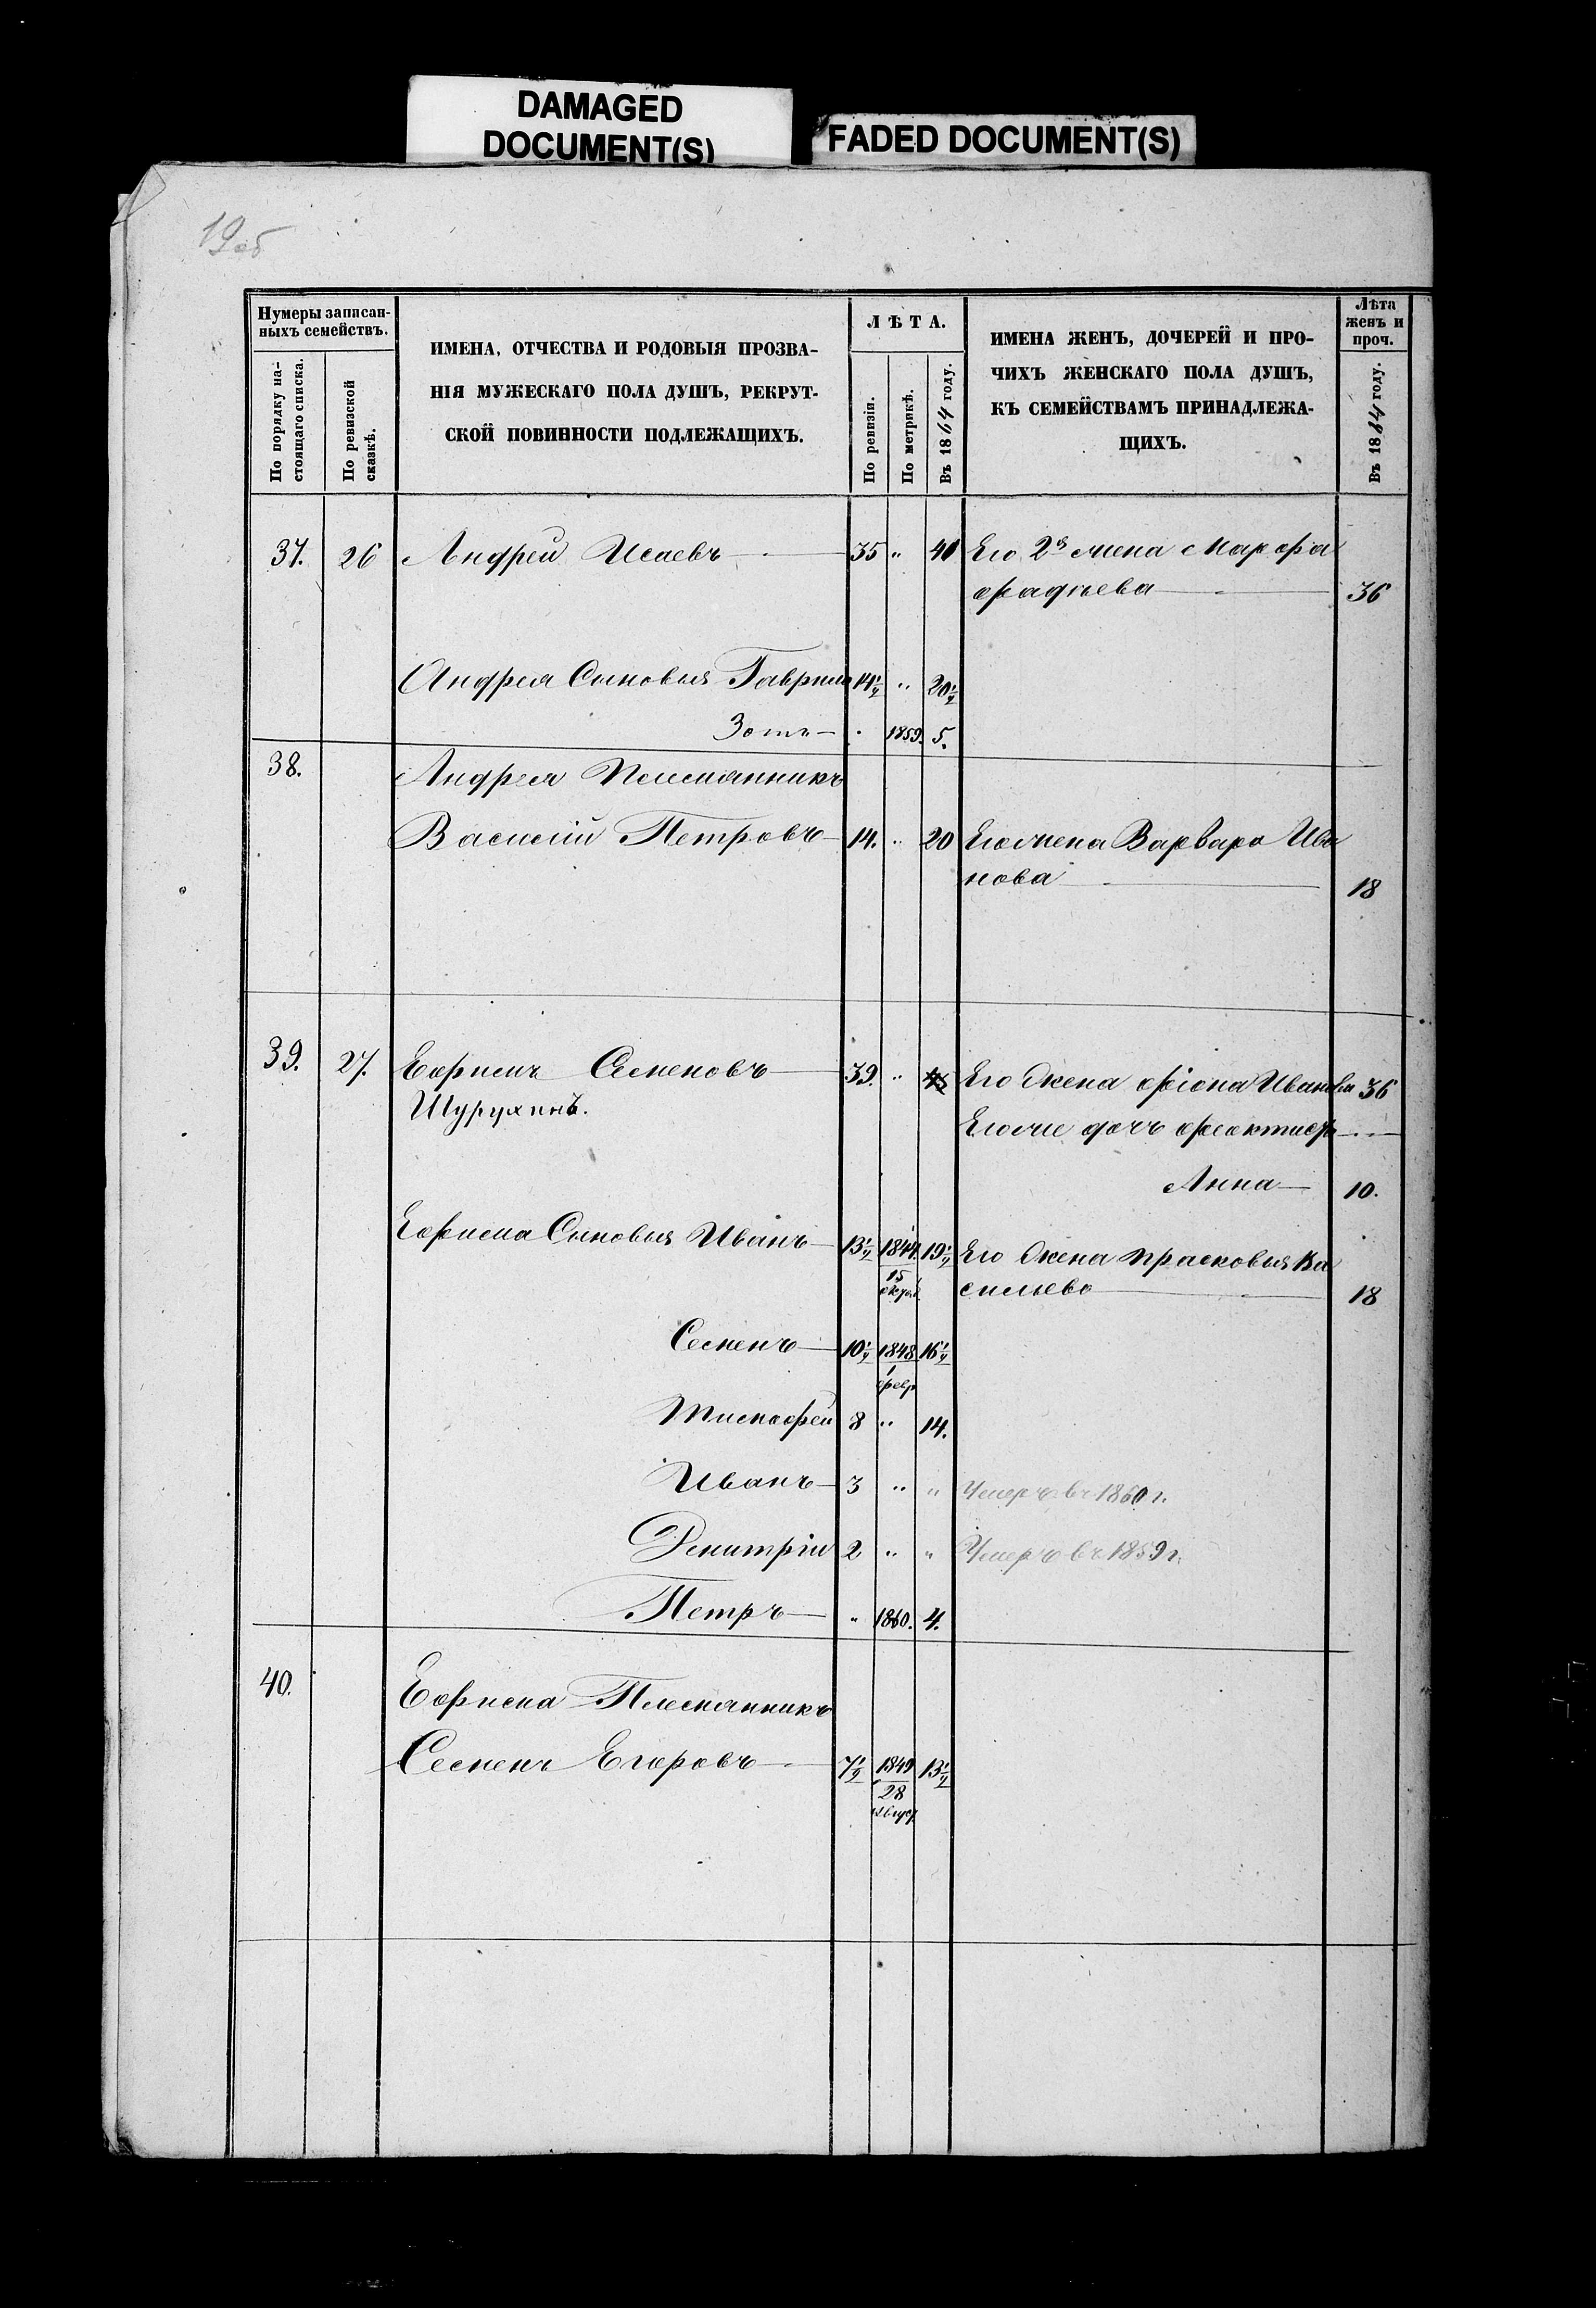 DAMAGED
DOCUMENT(S)
FADED DOCUMENT(S)
19об
Нумеры записан-
ныхъ семействъ.
По порядку на-
стоящаго списка.
По ревизской
сказкѣ.
ИМЕНА, ОТЧЕСТВА И РОДОВЫЯ ПРОЗВА-
НІЯ МУЖЕСКАГО ПОЛА ДУШЪ, РЕКРУТ-
СКОЙ ПОВИННОСТИ ПОДЛЕЖАЩИХЪ.
ЛѢТА.
По ревизіи.
По метрикѣ.
Въ 1864 году.
ИМЕНА ЖЕНЪ, ДОЧЕРЕЙ И ПРО-
ЧИХЪ ЖЕНСКАГО ПОЛА ДУШЪ,
КЪ СЕМЕЙСТВАМЪ ПРИНАДЛЕЖА-
ЩИХЪ.
Лѣта
женъ и
проч.
Въ 1864 году.
37. 26 Андрей Исаевъ 35 " 41 Его 2я жена Марфа
фадѣева 36
Андрея Сыновья Гаврила 14½ " 20½
Зотъ 1859. 5.
38. Андрея Племянникъ
Василій Петровъ 14. " 20 Его жена Варвара Ива
нова 18
39. 27. Ефимъ Семеновъ 39. " 45 Его жена фіона Иванова 36
Шурухинъ. Его же дочь феоктиста
Анна 10.
Ефима Сыновья Иванъ 13½ 1844. 19½ Его жена Прасковья Ва
15 октяб. сильева 18
Семенъ 10½ 1848 16½
1 февр
Тимофей 8 " 14.
Иванъ 3 " " Умеръ въ 1860 г.
Дмитрій 2 " " Умеръ въ 1859 г.
Петръ " 1860. 4.
40. Ефима Племянникъ
Семенъ Егоровъ 7½ 1849 13½
28
август